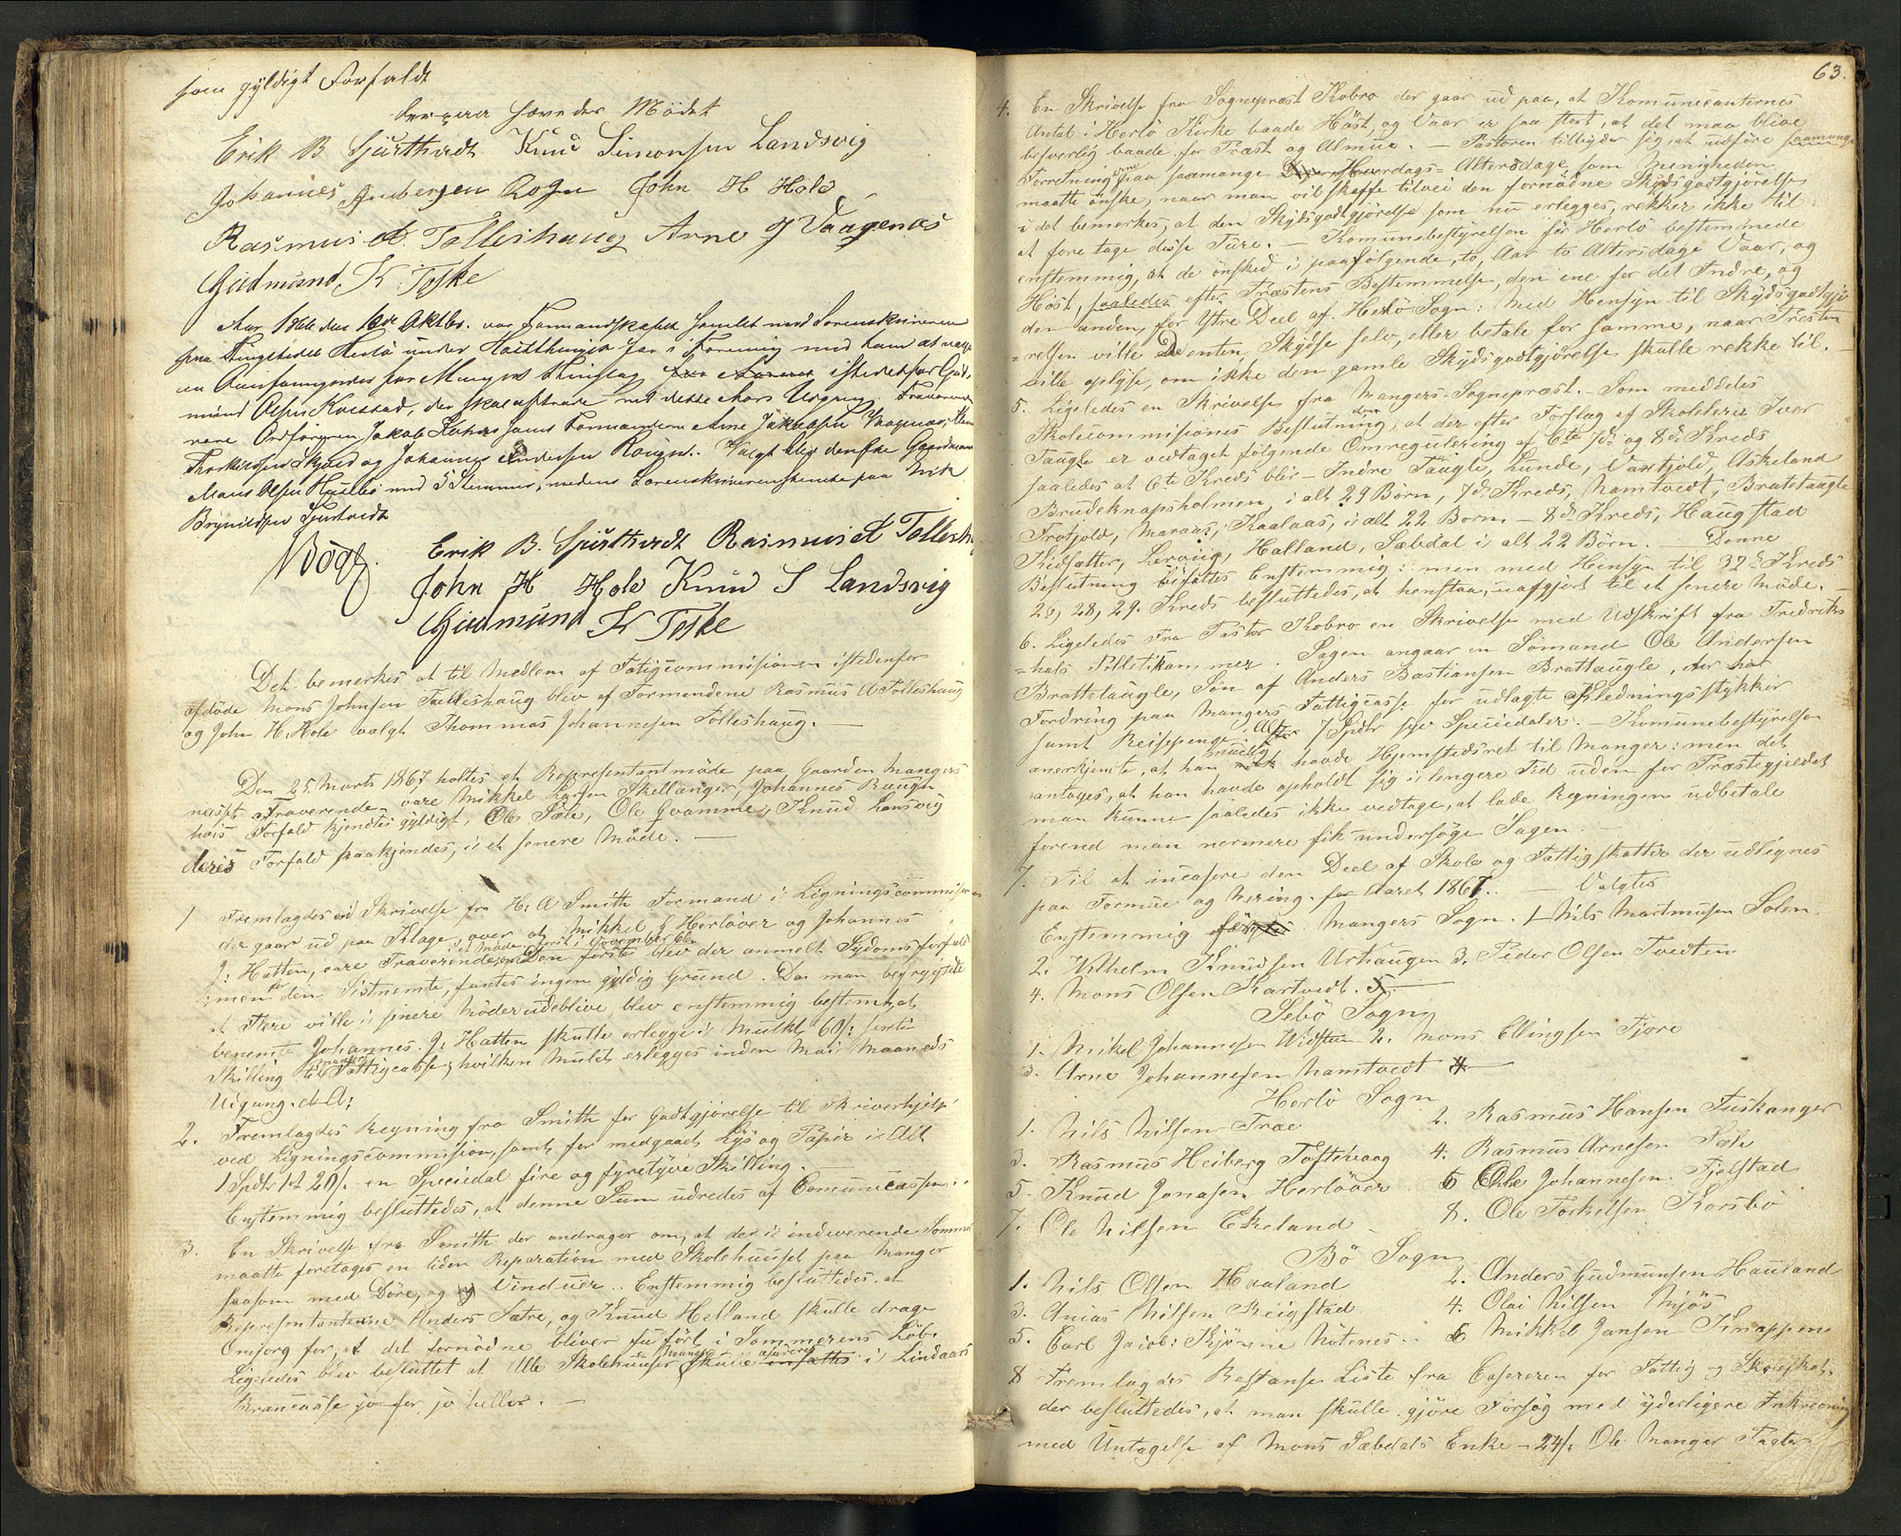 som gyldigt Forfald
derpaa hævedes Mødet
Erik B Sjurthvedt Knud Simonsen Landsvig
Johannes Andersen Rogn John H Hole
Rasmus A. Tolleshaug Arne J Vaagenes
Gudmund K Toske
Aar 1866 den 16de Oktbr. var Formandskabet samlet med Sorenskriveren
paa Thingstedet Herlö under Høstthinget for i Forening med ham at vælge
en Overformynder for Mangers Thinglag istedetfor Gud-
mund Olsen Kvestad, der skal aftræde med dette Aars Udgang. Fraværende
vare Ordføreren Jakob samt Formændene Arne Jakobsen Vaagenes,
Thorkildsen og Johannes Andersen Rogn. Valgt blev dertil Gaardmand
Mons Olsen med 5 Stemmer, medens Sorenskriveren stemte paa Erik
Brynildsen Sjurtvedt
Erik B. Sjurthvedt Rasmus A Tollesh
John H Hole Knud S Landsvig
Gudmund K Toske
Det bemerkes at til Medlem af Fatigcommisionen istedenfor
afdöde Mons Johnsen Tolleshaug blev af Formendene Rasmus A Tolleshaug
og John H. Hole valgt Thommas Johannesen Tolleshaug. —
Den 25 Marts 1867 holtes et Representantmöde paa Gaarden Manger
næst. Fraverende vare Mikkel Larsen Skellanger, Johannes Raugn
hvis Forfald kjendtes gyldigt, Ole Sæle, Ole Qvamme, Knud Lansvig
deres Forfald paakjendes, i et senere Möde. —
1 Fremlagdes en Skrivelse fra H. A Smith Formand i Ligningscommisionen
der gaar ud paa Klage over at Mikkel L Herlöver og Johannes
J: Hatten, vare Fraverende i et Möde afholdt i November Den förste blev der anmelt Sygdoms forfald
: men for den Sistnemte, fantes ingen gyldig Grund. Da man begrygtede
at Flere ville i senere Möder udeblive, blev enstemmig bestemt, at
benemte Johannes. J: Hatten skulle erlegge i Mulkt 60 /: Sexti
Skilling til Mangers Fattigcasse, hvilken Mulct erlegges inden Mai Maaneds
Udgang. d. A:
2. Fremlagdes Regning fra Smith for Godtgjörelse til Skriverhjelp
ved Ligningscommision, samt for medgaaet Lys og Papir i Alt
1 Spdr 1 Ort 20 /. en Speciedal fire og fyretyve Skilling. —
Enstemmig besluttedes, at denne Sum udredes af Comunecassen. —
3. En Skrivelse fra Smith der andrager om, at der i indeværende Sommer
maatte foretages en liden Reparation med Skolehuuset paa Manger
saasom med Döre, og Vinduer. Enstemmig besluttedes. at
Representanterne Anders Sætre, og Knud Helland skulle drage
Omsorg for, at det fornödne bliver udført i Sommerens Löb.
Ligeledes blev besluttet at Alle Skolehuuser i Manger skulle assureres i Lindaas
Brancasse jo för jo heller. —
63.
4. En Skrivelse fra Sogneprest Kobro der gaar ud paa, at Komunecanternes
Antal i Herlö Kirke baade Höst, og Vaar er saa stort, at det maa blive
besverlig baade for Præst og Almue. — Pastoren tilbyder sig, at udföre saamange
Forretning paa saamange Hverdags-Altersdage, som Menigheden
maatte önske, naar man vil skaffe tilveie den fornödne Skydsgodtgjörelse
i det bemerkes, at den Skydsgodtgjörelse som nu erlegges, rekker ikke til
at fore tage disse Ture. — Komunebestyrelsen for Herlö bestemmede
enstemmig, at de önsked i paafölgende, to, Aar to Altersdage Vaar, og
Höst, saaledes efter Præstens Bestemmelse, den ene for det Indre, og
den anden, for Ytre Deel af Herlö Sogn: med Hensyn til Skydsgodtgjö
=relsen ville De enten Skydse selv, eller betale for samme, naar Presten
ville oplyse, om ikke den gamle Skydsgodtgjörelse skulle rekke til. —
5. Ligeledes en Skrivelse fra Mangers Sogneprest. Som meddeles
Skolecommisionens Beslutning, at der efter Forslag af Skolelerer Iver
Taugle er vedtaget fölgende Omregulering af 6te 7de og 8de Kreds
saaledes at 6te Kreds blir — Indre Taugle, Lunde, Vaxfjold, Askeland
Brudeknapsholmen, i alt 29 Börn, 7de Kreds, Namtvedt, Brattetaugle
Trofjold, Maraas, Kaalaas, i alt 22 Born — 8de Kreds, Haugstad
Kidsætter, Lervig, Halland, Sæbdal i alt 22 Börn. — Denne
Beslutning bifaltes Enstemmig: men med Hensyn til 32te Kreds
26, 28, 29. Kreds besluttedes, at henstaa, uafgjort til et senere Möde. —
6. Ligeledes Fra Pastor Kobro en Skrivelse med Udskrift fra Fredriks
=hals Pollitikammer. Sagen angaar en Sömand Ole Andersen
Brattetaugle, Sön af Anders Bastiansen Brattaugle, der har
Fordring paa Mangers Fattigcasse for udlagte Kledningsstykker
samt Reispenge, 7 Spdlr syv Speciedaler. — Komunebestyrelsen
anerkjente, at han havde Hjemstedsret til Manger: men det
antages, at han havde opholdt sig i lengere Tid uden for Præstegjeldet
man kunne saaledes ikke vedtage, at lade Regningen udbetale
forend man nermere fik undersöge Sagen. —
7. Til at incasere den Deel af Skole og Fattigskatter der udlignes
paa Formue og Næring. for Aaret 1867. — Valgtes
Enstemmig Mangers Sogn. 1 Nils Martinusen Solem
2. Wilhelm Knudsen Urhaugen 3. Peder Olsen Tvedten
4. Mons Olsen Kartvedt.
Sebö Sogn
1. Mikel Johannesen Widsteen 2. Mons Ellingsen Fjore
3. Arne Johannesen Namtvedt
Herlö Sogn
1. Nils Nilsen Træe 2. Rasmus Hansen Fuskanger
3. Rasmus Heiberg Toftevaag 4. Rasmus Arnesen Sæle
5. Knud Jonasen Herlöver 6 Ole Johannesen Fjelstad
7. Ole Nilsen Ekeland 8. Ole Torkelsen Korsbö
Bö Sogn
1. Nils Olsen Haaland 2. Anders Gudmunsen Hauland
3. Anias Nilsen Reigstad 4. Olai Nilsen Mjös
5. Carl Jacob: Skjönne Nötnes 6 Mikkel Jansen Knappen
8 Fremlagdes Restanse Liste fra Casereren for Fattig og Skoleskat,
der besluttedes, at man skulle gjöre Forsög med yderligere Inkrevning
med Untagelse af Mons Sæbdals Enke — 24 /. Ole Manger